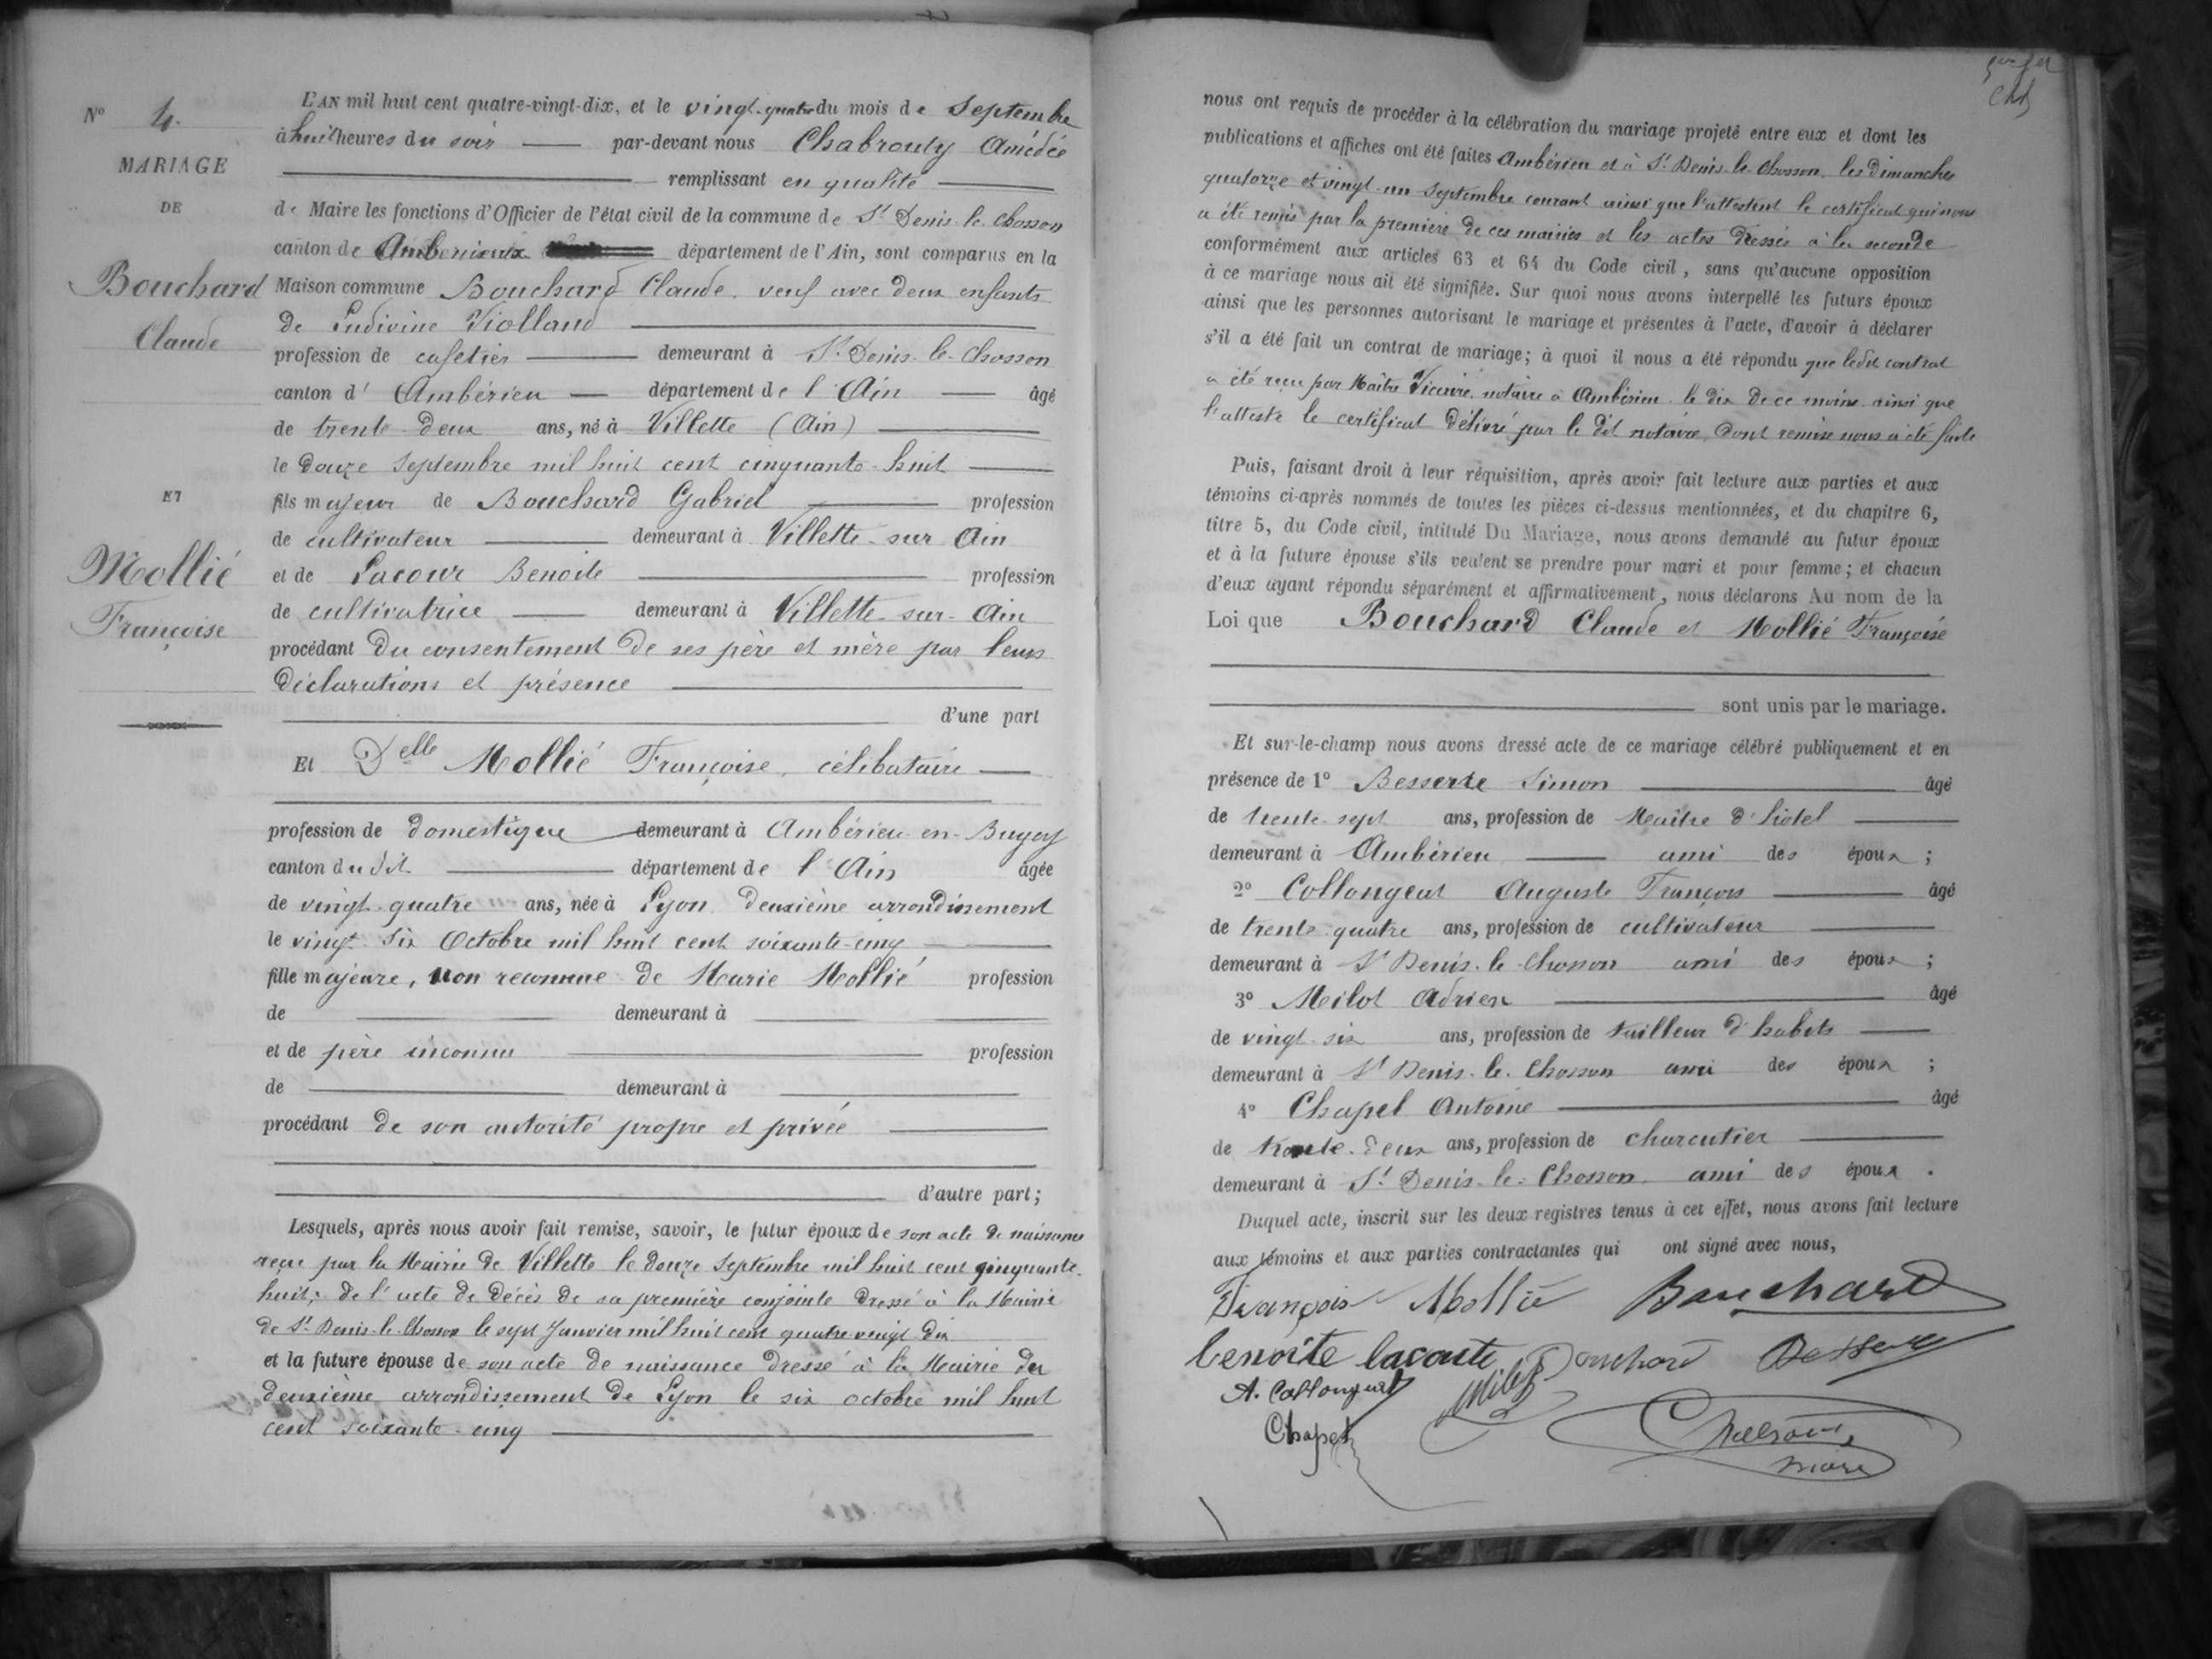 Nº 4.
MARIAGE
DE
Bouchard
Claude
ET
Mollié
Françoise
L'AN mil huit cent quatre-vingt-dix, et le vingt-quatre du mois de Septembre
à huit heures du soir par-devant nous Chabrouty Amédée
remplissant en qualité
de Maire les fonctions d'Officier de l'état civil de la commune de St Denis-le-Chosson
canton de Ambérieux département de l'Ain, sont comparus en la
Maison commune Bouchard Claude, veuf avec deux enfants
de Ludivine Violland
profession de cafetier demeurant à St Denis-le-Chosson
canton d'Ambérieu département de l'Ain âgé
de trente-deux ans, né à Villette (Ain)
le douze Septembre mil huit cent cinquante-huit
fils majeur de Bouchard Gabriel profession
de cultivateur demeurant à Villette-sur-Ain
et de Lacour Benoite profession
de cultivatrice demeurant à Villette-sur-Ain
procédant du consentement de ses père et mère par leurs
déclarations et présence
d'une part
Et Delle Mollié Françoise, célibataire
profession de domestique demeurant à Ambérieu-en-Bugey
canton du dit département de l'Ain âgée
de vingt-quatre ans, née à Lyon deuxième arrondissement
le vingt-six Octobre mil huit cent soixante-cinq
fille majeure, non reconnue de Marie Mollié profession
de demeurant à
et de père inconnu profession
de demeurant à
procédant de son autorité propre et privée
d'autre part;
Lesquels, après nous avoir fait remise, savoir, le futur époux de son acte de naissance
reçu par la Mairie de Villette le douze Septembre mil huit cent cinquante-
huit; de l'acte de décès de sa première conjointe dressé à la Mairie
de St Denis-le-Chosson le sept Janvier mil huit cent quatre-vingt-dix
et la future épouse de son acte de naissance dressé à la Mairie du
deuxième arrondissement de Lyon le six octobre mil huit
cent soixante-cinq
nous ont requis de procéder à la célébration du mariage projeté entre eux et dont les
publications et affiches ont été faites Ambérieu et à St Denis-le-Chosson, les dimanches
quatorze et vingt-un Septembre courant ainsi que l'attestent le certificat qui nous
a été remis par la première de ces mairies et les actes dressés à la seconde
conformément aux articles 63 et 64 du Code civil, sans qu'aucune opposition
à ce mariage nous ait été signifiée. Sur quoi nous avons interpellé les futurs époux
ainsi que les personnes autorisant le mariage et présentes à l'acte, d'avoir à déclarer
s'il a été fait un contrat de mariage; à quoi il nous a été répondu que ledit contrat
a été reçu par Maître Vicaire, notaire à Ambérieu le dix de ce mois ainsi que
l'atteste le certificat délivré par le dit notaire, dont remise nous a été faite
Puis, faisant droit à leur réquisition, après avoir fait lecture aux parties et aux
témoins ci-après nommés de toutes les pièces ci-dessus mentionnées, et du chapitre 6,
titre 5, du Code civil, intitulé Du Mariage, nous avons demandé au futur époux
et à la future épouse s'ils veulent se prendre pour mari et pour femme; et chacun
d'eux ayant répondu séparément et affirmativement, nous déclarons Au nom de la
Loi que Bouchard Claude et Mollié Françoise
sont unis par le mariage.
Et sur-le-champ nous avons dressé acte de ce mariage célébré publiquement et en
présence de 1º Besserte Simon âgé
de trente-sept ans, profession de Maître d'hôtel
demeurant à Ambérieu ami des époux;
2º Collongeat Auguste François âgé
de trente-quatre ans, profession de cultivateur
demeurant à St Denis-le-Chosson ami des époux;
3º Milot Adrien âgé
de vingt-six ans, profession de tailleur d'habits
demeurant à St Denis-le-Chosson ami des époux;
4º Chapel Antoine âgé
de trente-deux ans, profession de charcutier
demeurant à St Denis-le-Chosson ami des époux.
Duquel acte, inscrit sur les deux registres tenus à cet effet, nous avons fait lecture
aux témoins et aux parties contractantes qui ont signé avec nous,
François Mollié Bouchard
benoite lacoute Bouchard
A. Collongeat Milot
Chapel
maire